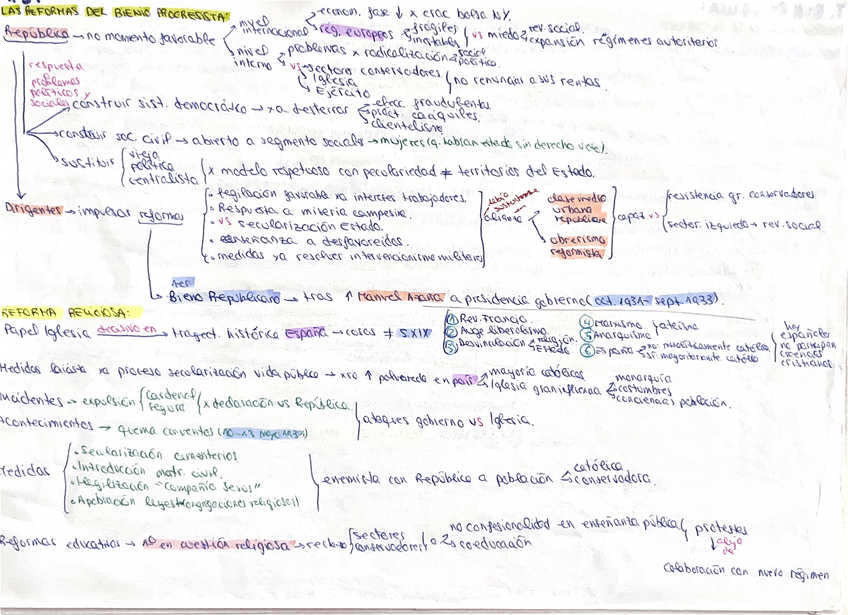 LAS REFORMAS DEL BIENIO PROGRESISTA:
República → no momento favorable
nivel internacional
econom. fase ↓ x crac bolsa N.Y.
reg. europeos frágiles inestables vs miedo rev. social. expansión regímenes autoritarios
nivel interno
problemas x radicalización social política
vs sectores conservadores Iglesia Ejército no renunciar a sus rentas.
respuesta problemas políticos y sociales
construir sist. democrático → xa desterrar elecc. fraudulentas pract. caciquiles clientelismo
construir soc. civil → abierto a segmento sociales → mujeres (q. habían estado sin derecho voto)
sustituir vieja política centralista x modelo respetuoso con peculiaridad ≠ territorios del Estado.
Dirigentes → impulsar reformas
• Legislación favorable xa intereses trabajadores.
• Respuesta a miseria campesina.
• vs secularización Estado.
• enseñanza a desfavorecidos.
• medidas xa resolver intervencionismo militar
alianza
clase media urbana republicana
obrerismo reformista
capaz vs
resistencia gr. conservadores
sector. izquierda → rev. social.
1er Bienio Republicano → tras ↑ Manuel Azaña a presidencia gobierno (oct. 1931 - sept. 1933).
REFORMA RELIGIOSA:
Papel Iglesia decisivo en → trayect. histórica España → cosas ≠ S.XIX
① Rev. Francia
② Auge liberalismo.
③ Desvinculación religión. Estado
④ Marxismo. y ateísmo
⑤ Anarquismo
⑥ España no monolíticamente católica sí. mayoritariamente católica
hay españoles no participan creencias cristianas
Medidas laicista xa proceso secularización vida pública → xro ↑ polvareda en país mayoría católicos Iglesia gran influencia monarquía costumbres conciencias población.
Incidentes → expulsión cardenal Segura x declaración vs República
Acontecimientos → quema conventos (10-13 Mayo 1931)
ataques gobierno vs Iglesia.
Medidas
• Secularización cementerios
• Introducción matr. civil.
• Ilegalización "Compañía Jesús"
• Aprobación leyes (organizaciones religiosas)
enemista con República a población católica conservadora.
Reformas educativas → no en cuestión religiosa → rechazo sectores conservadores a no confesionalidad en enseñanza pública coeducación protestas
aleja de
colaboración con nuevo régimen